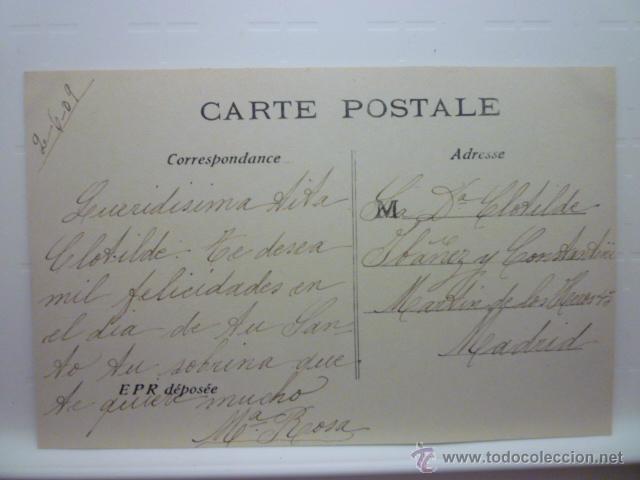 2-6-09
CARTE POSTALE
Correspondance
Queridisima tita
Clotilde. Te desea
mil felicidades en
el dia de tu San-
to tu sobrina que
te quiere mucho
Mª Rosa
EPR déposée
Adresse
M
Sra Dª Clotilde
Ibáñez y Constantini
Martin de los Heros
Madrid
www.todocoleccion.net